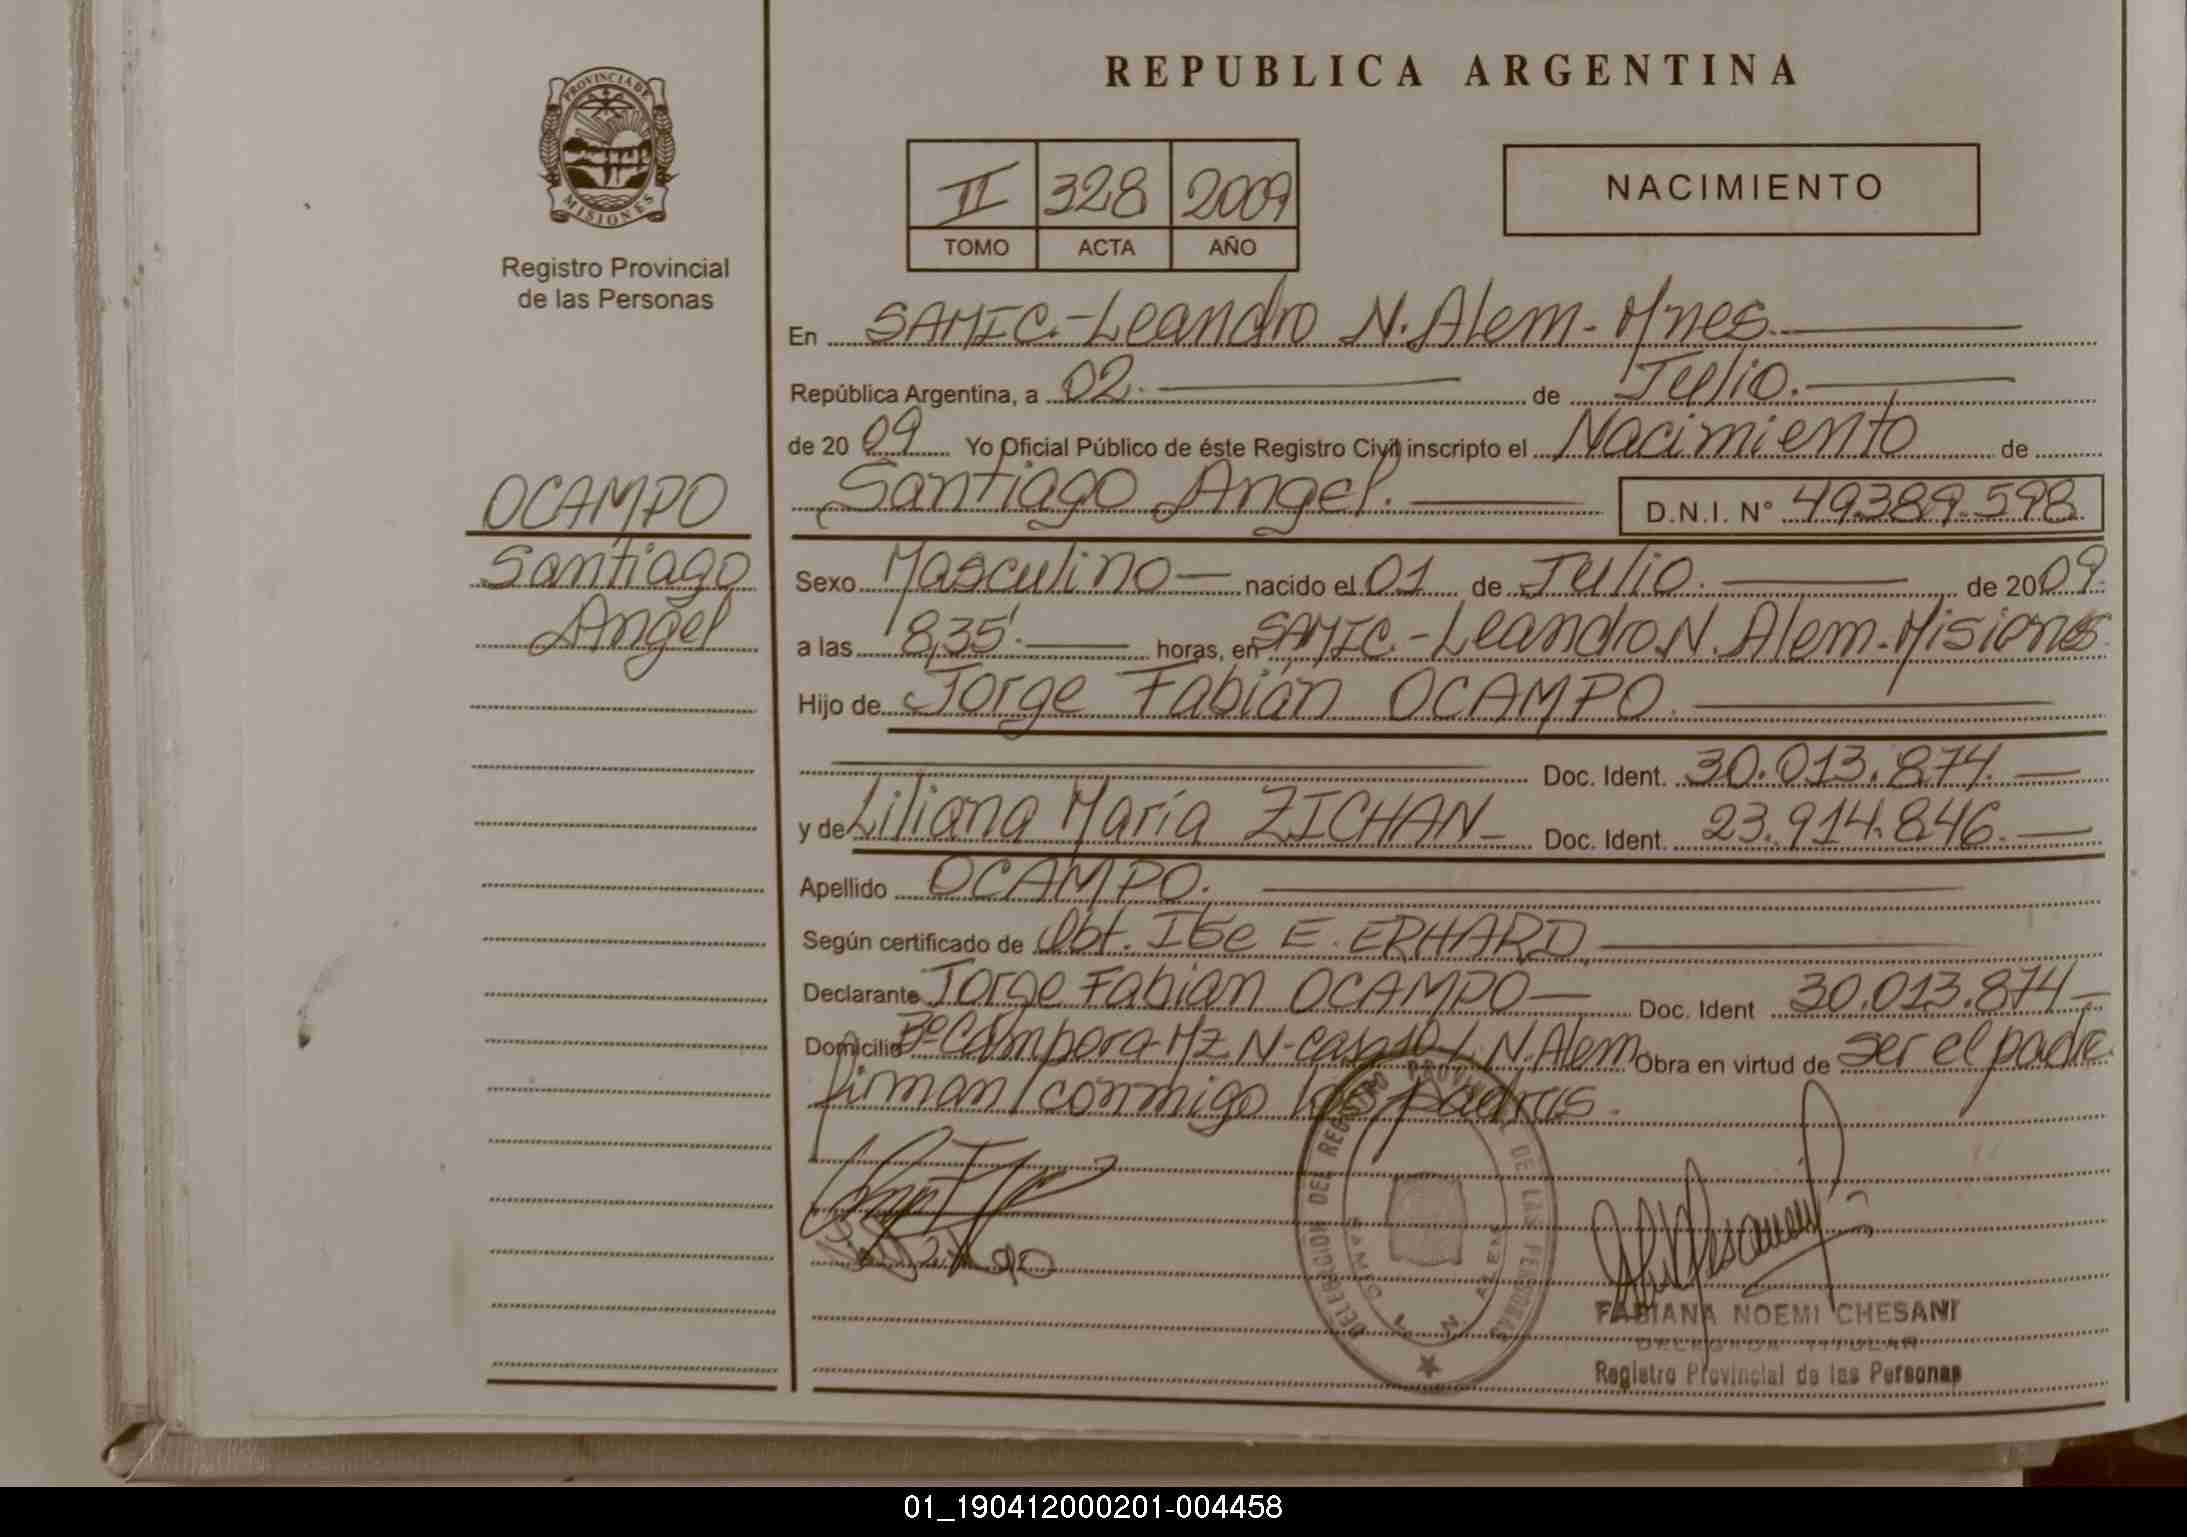 REPUBLICA ARGENTINA
PROVINCIA DE
MISIONES
Registro Provincial
de las Personas
II 328 2009
TOMO ACTA AÑO
NACIMIENTO
En SAMIC.-Leandro N. Alem- Mnes.
República Argentina, a 02. de Julio.
de 20 09 Yo Oficial Público de éste Registro Civil inscripto el Nacimiento de
Santiago Angel. D.N.I. N° 49389.598.
OCAMPO
Santiago
Angel
Sexo Masculino nacido el 01 de Julio. de 2009.
a las 8,35'. horas, en SAMIC.-Leandro.N. Alem.-Misiones.
Hijo de Jorge Fabián OCAMPO.
Doc. Ident. 30.013.874.
y de Liliana María ZICHAN Doc. Ident. 23.914.846.
Apellido OCAMPO.
Según certificado de Obt. E. ERHARD
Declarante Jorge Fabián OCAMPO Doc. Ident 30.013.874
Domicilio Bº Cámpora-Mz N-casa L. N. Alem Obra en virtud de ser el padre.
firman conmigo los padres.
DELEGACION DEL REGISTRO PROVINCIAL DE LAS PERSONAS
L. N. ALEM
FABIANA NOEMI CHESANI
DELEGADA TITULAR
Registro Provincial de las Personas
01_190412000201-004458